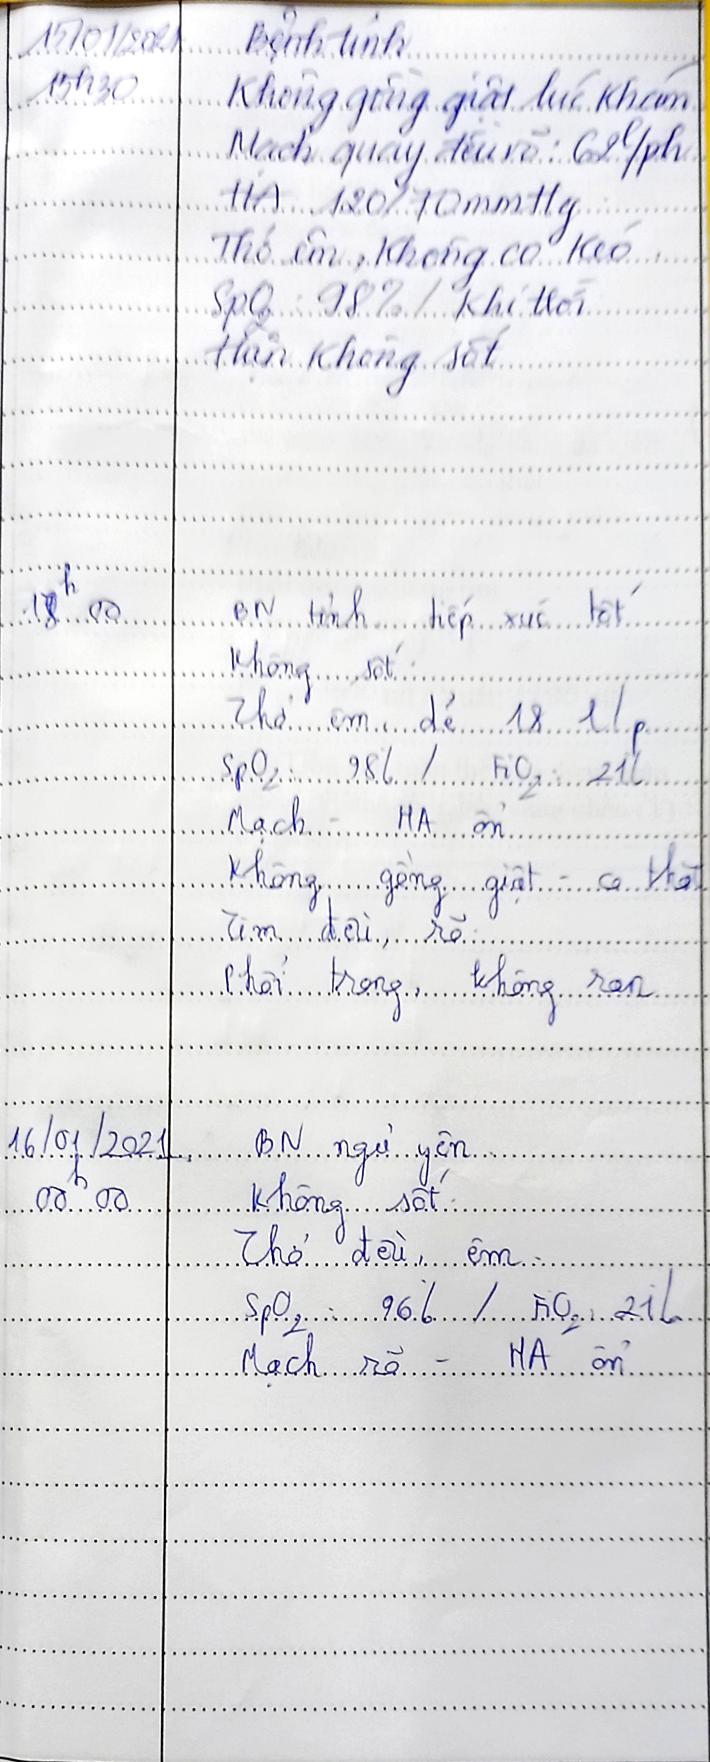 15/01/2021 Bệnh tỉnh
15h30 Không gồng giật lúc khám
Mạch quay đều rõ: 62l/ph
HA 120/70mmHg
Thở êm, không co kéo
SpO2: 98% / khí trời
Hiện không sốt
18h00 BN tỉnh tiếp xúc tốt
Không sốt.
Thở êm, dễ 18 l/p
SpO2: 98% / FiO2: 21%
Mạch - HA ổn
Không gồng giật - co thắt
Tim đều, rõ.
Phổi trong, không ran
16/01/2021 BN ngủ yên
00h00 Không sốt.
Thở đều, êm.
SpO2: 96% / FiO2: 21%
Mạch rõ - HA ổn